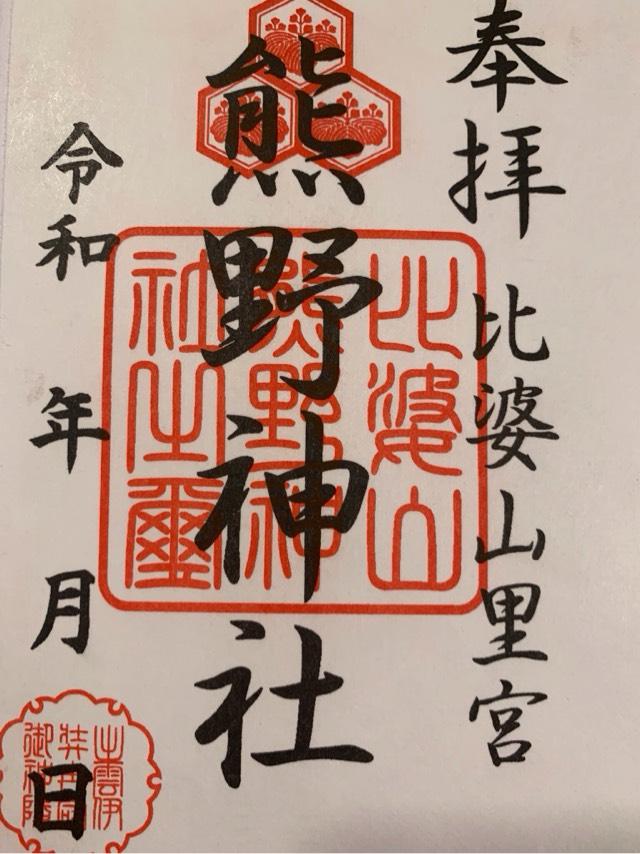 奉拝 比婆山里宮
熊野神社
令和 年 月 日
比婆山
熊野神
社之璽
出雲伊
御神陵